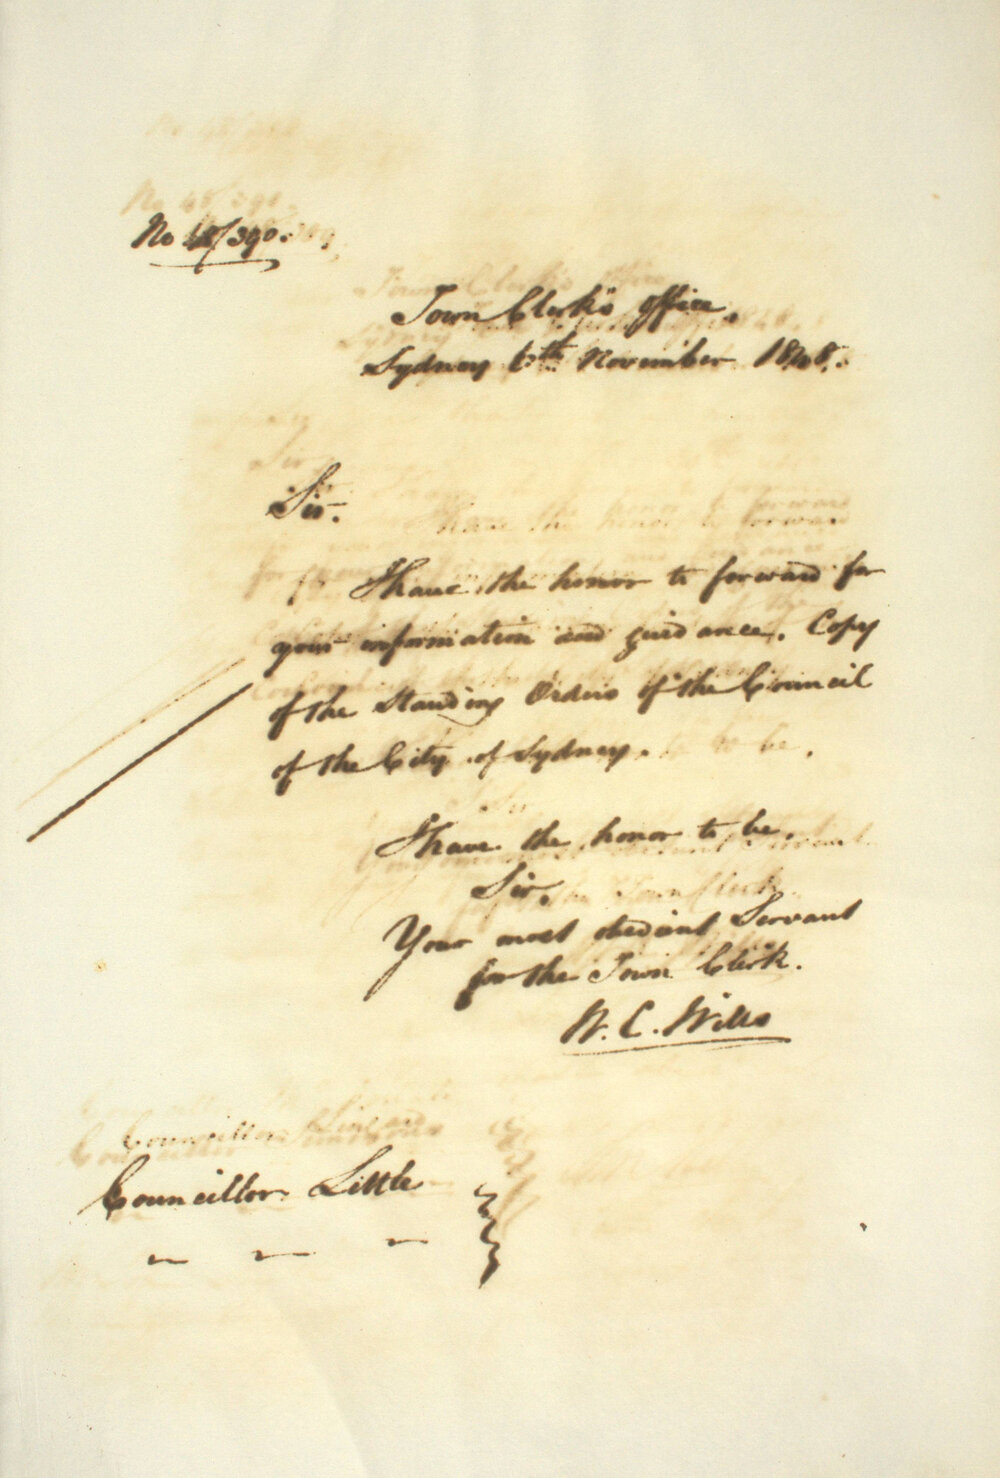 No 48/390.
Town Clerk's Office,
Sydney 6th November 1848.
Sir.
I have the honor to forward for
your information and guidance. Copy
of the Standing Orders of the Council
of the City of Sydney.
I have the honor to be,
Sir,
Your most obedient Servant
for the Town Clerk.
W. C. Wills
Councillor Little